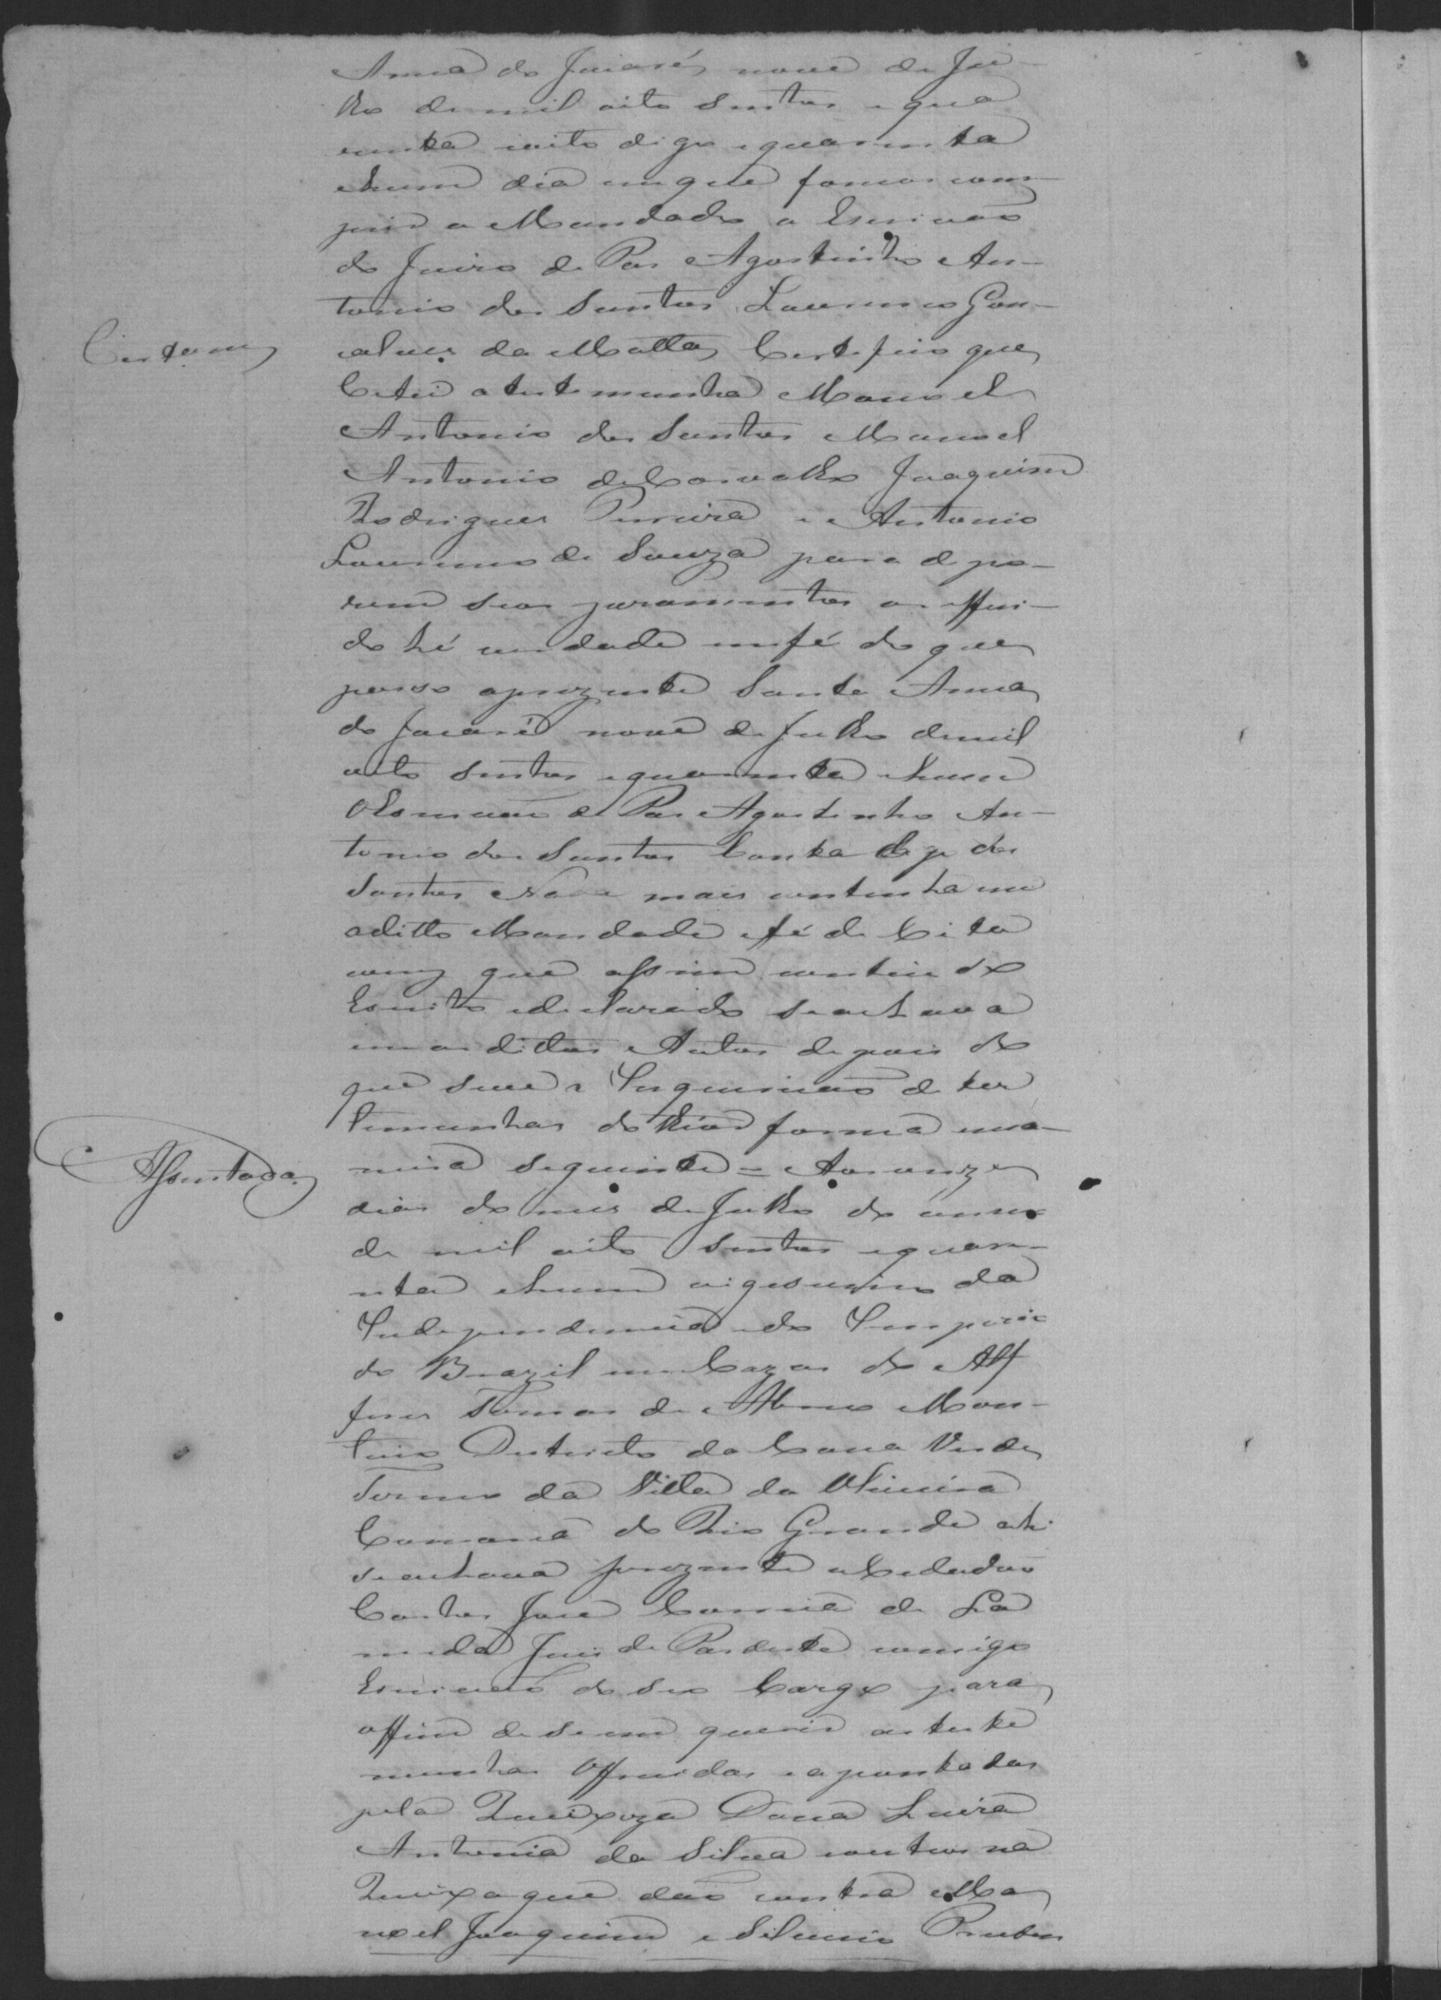 Anna do Jacaré nove de Ju-
lho de mil oito sentos e qua
renta e oito digo e quarenta
ehum dia em que fomos com-
prir o Mandado o Escrivão
do Juizo de Pas Agostinho An-
tonio dos Santos Lourenço Gon-
Certam
calves da Matta Certefico que
Citei a testemunha Manoel
Antonio dos Santos Manoel
Antonio de Carvalho Joaquim
Rodrigues Pereira e Antonio
Lourenço de Souza para depo-
rem seos juramentos o reffiri-
do hé verdade em fé do que
passo aprezente Santa Anna
do Jacaré nove de Julho demil
oito sentos e quarenta ehum
O Escrivão de Pas Agostinho An-
tonio dos Santos Conta
Santos Nada mais continha em
o ditto Mandado e fé de Cita
cam que assim contiudo
Escrito e declarado seachava
em os dittos Autos depois do
que seve a Inquirição de tes
temunhas do thior forma e ma-
Assentada
neira seguinte = Aos onze
dias do mes de Julho do anno
de mil oito sentos e quare-
nta ehum vigesimo da
Independencia e do Imperio
do Brazil em Cazas do Alf
feres Tomas de Abreo Mon-
teiro Destrito da Cana Verde
Termo da Villa da Oliveira
Comarca do Rio Grande ahi
seachava prezente o Cidadão
Carlos José Correia de La
cerda Juis de Pas deste comigo
Escrivão do seo Cargo para
effim de serem queridas as teste
munhas Offrecidas e apontadas
pela Queixoza Dona Luiza
Antonia da Silva contuar na
Queixa que deo contra Ma
noel Joaquim e Silverio